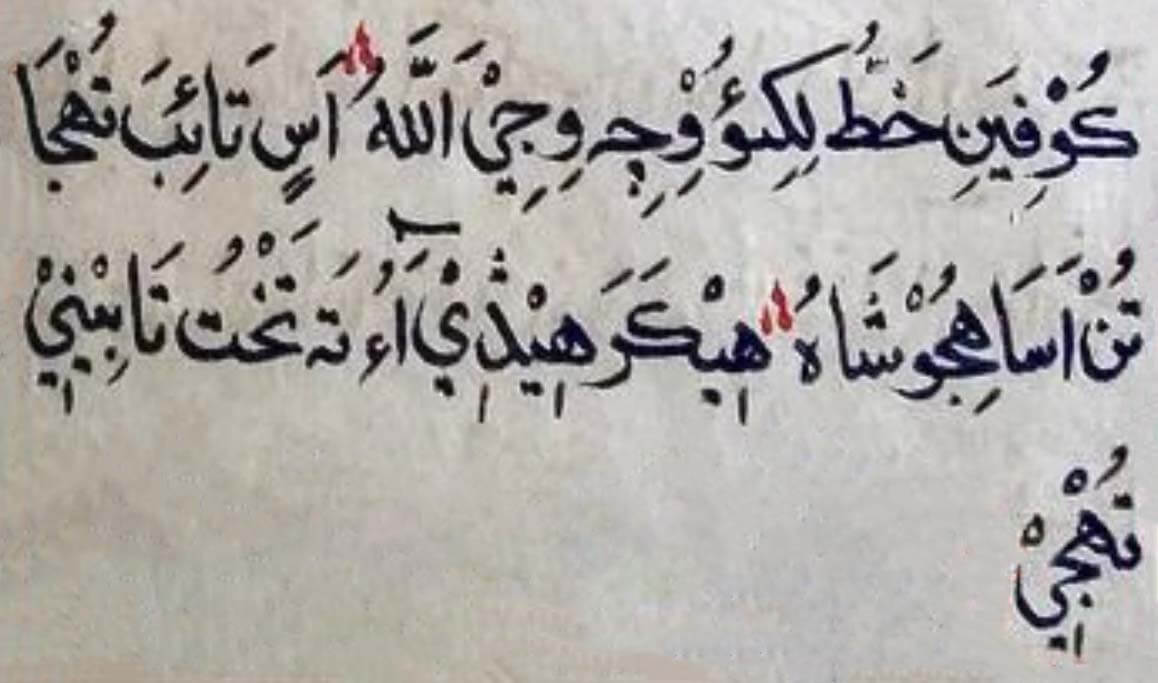 كُوْفِيَنِ خَطُّ لِكِئو وِچِ وِجِيْ اَللَّهُ اَسٍ تَائِبَ تُهْجَا
تُنْ اَسَا هِجُوْ شَاهُ هِيْكَرَ هِيْڎِيْ آءُ تَہ تَخْتُ تَابِيْنِيْ
تُهْجِيْ